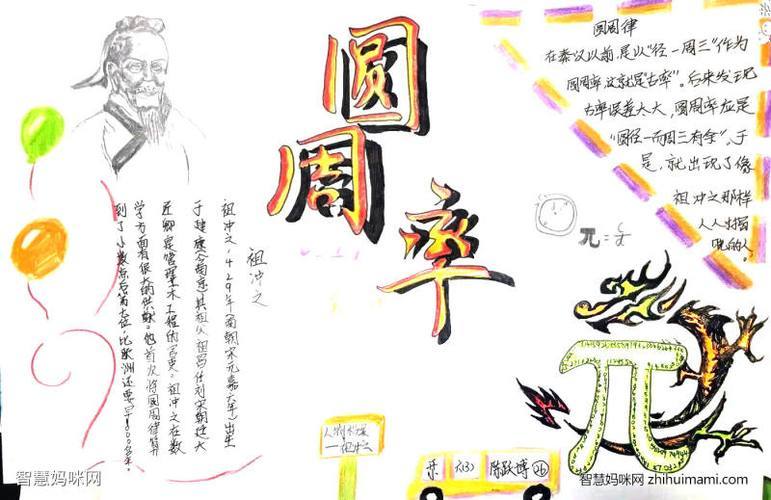 圆
周
率
圆周律
在秦汉以前,是以"径一周三"作为
圆周率,这就是"古率"。后来发现
古率误差太大,圆周率应是
"圆径一而周三有余"。于
是,就出现了像
祖冲之那样
人人出揭
π=
祖冲之
祖冲之,429年(南朝宋元嘉六年)出生
于建康(今南京)其祖父祖昌任刘宋朝廷大
匠卿是管理土木工程的官吏。祖冲之在数
学方面有很大的供献。他首次将圆周律算
到了小数点后第七位,比欧洲还要早1000多年。
π
陈跃博 26
智慧妈咪网
智慧妈咪网 zhihuimami.com